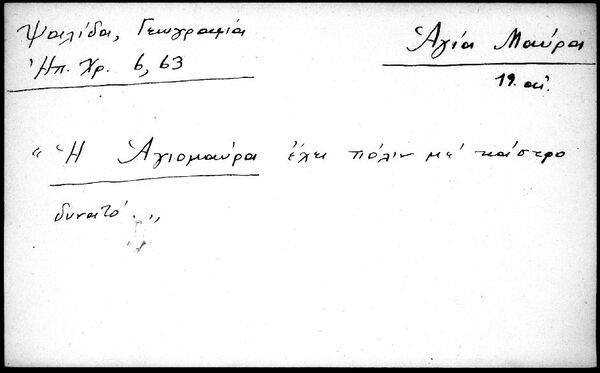 Ψαλίδα, Γεωγραφία
Ἠπ. Χρ. 6, 63
Ἁγία Μαύρα
19. αἰ.
"Ἡ Ἁγιομαύρα ἔχει πόλιν μὲ κάστρο
δυνατό."